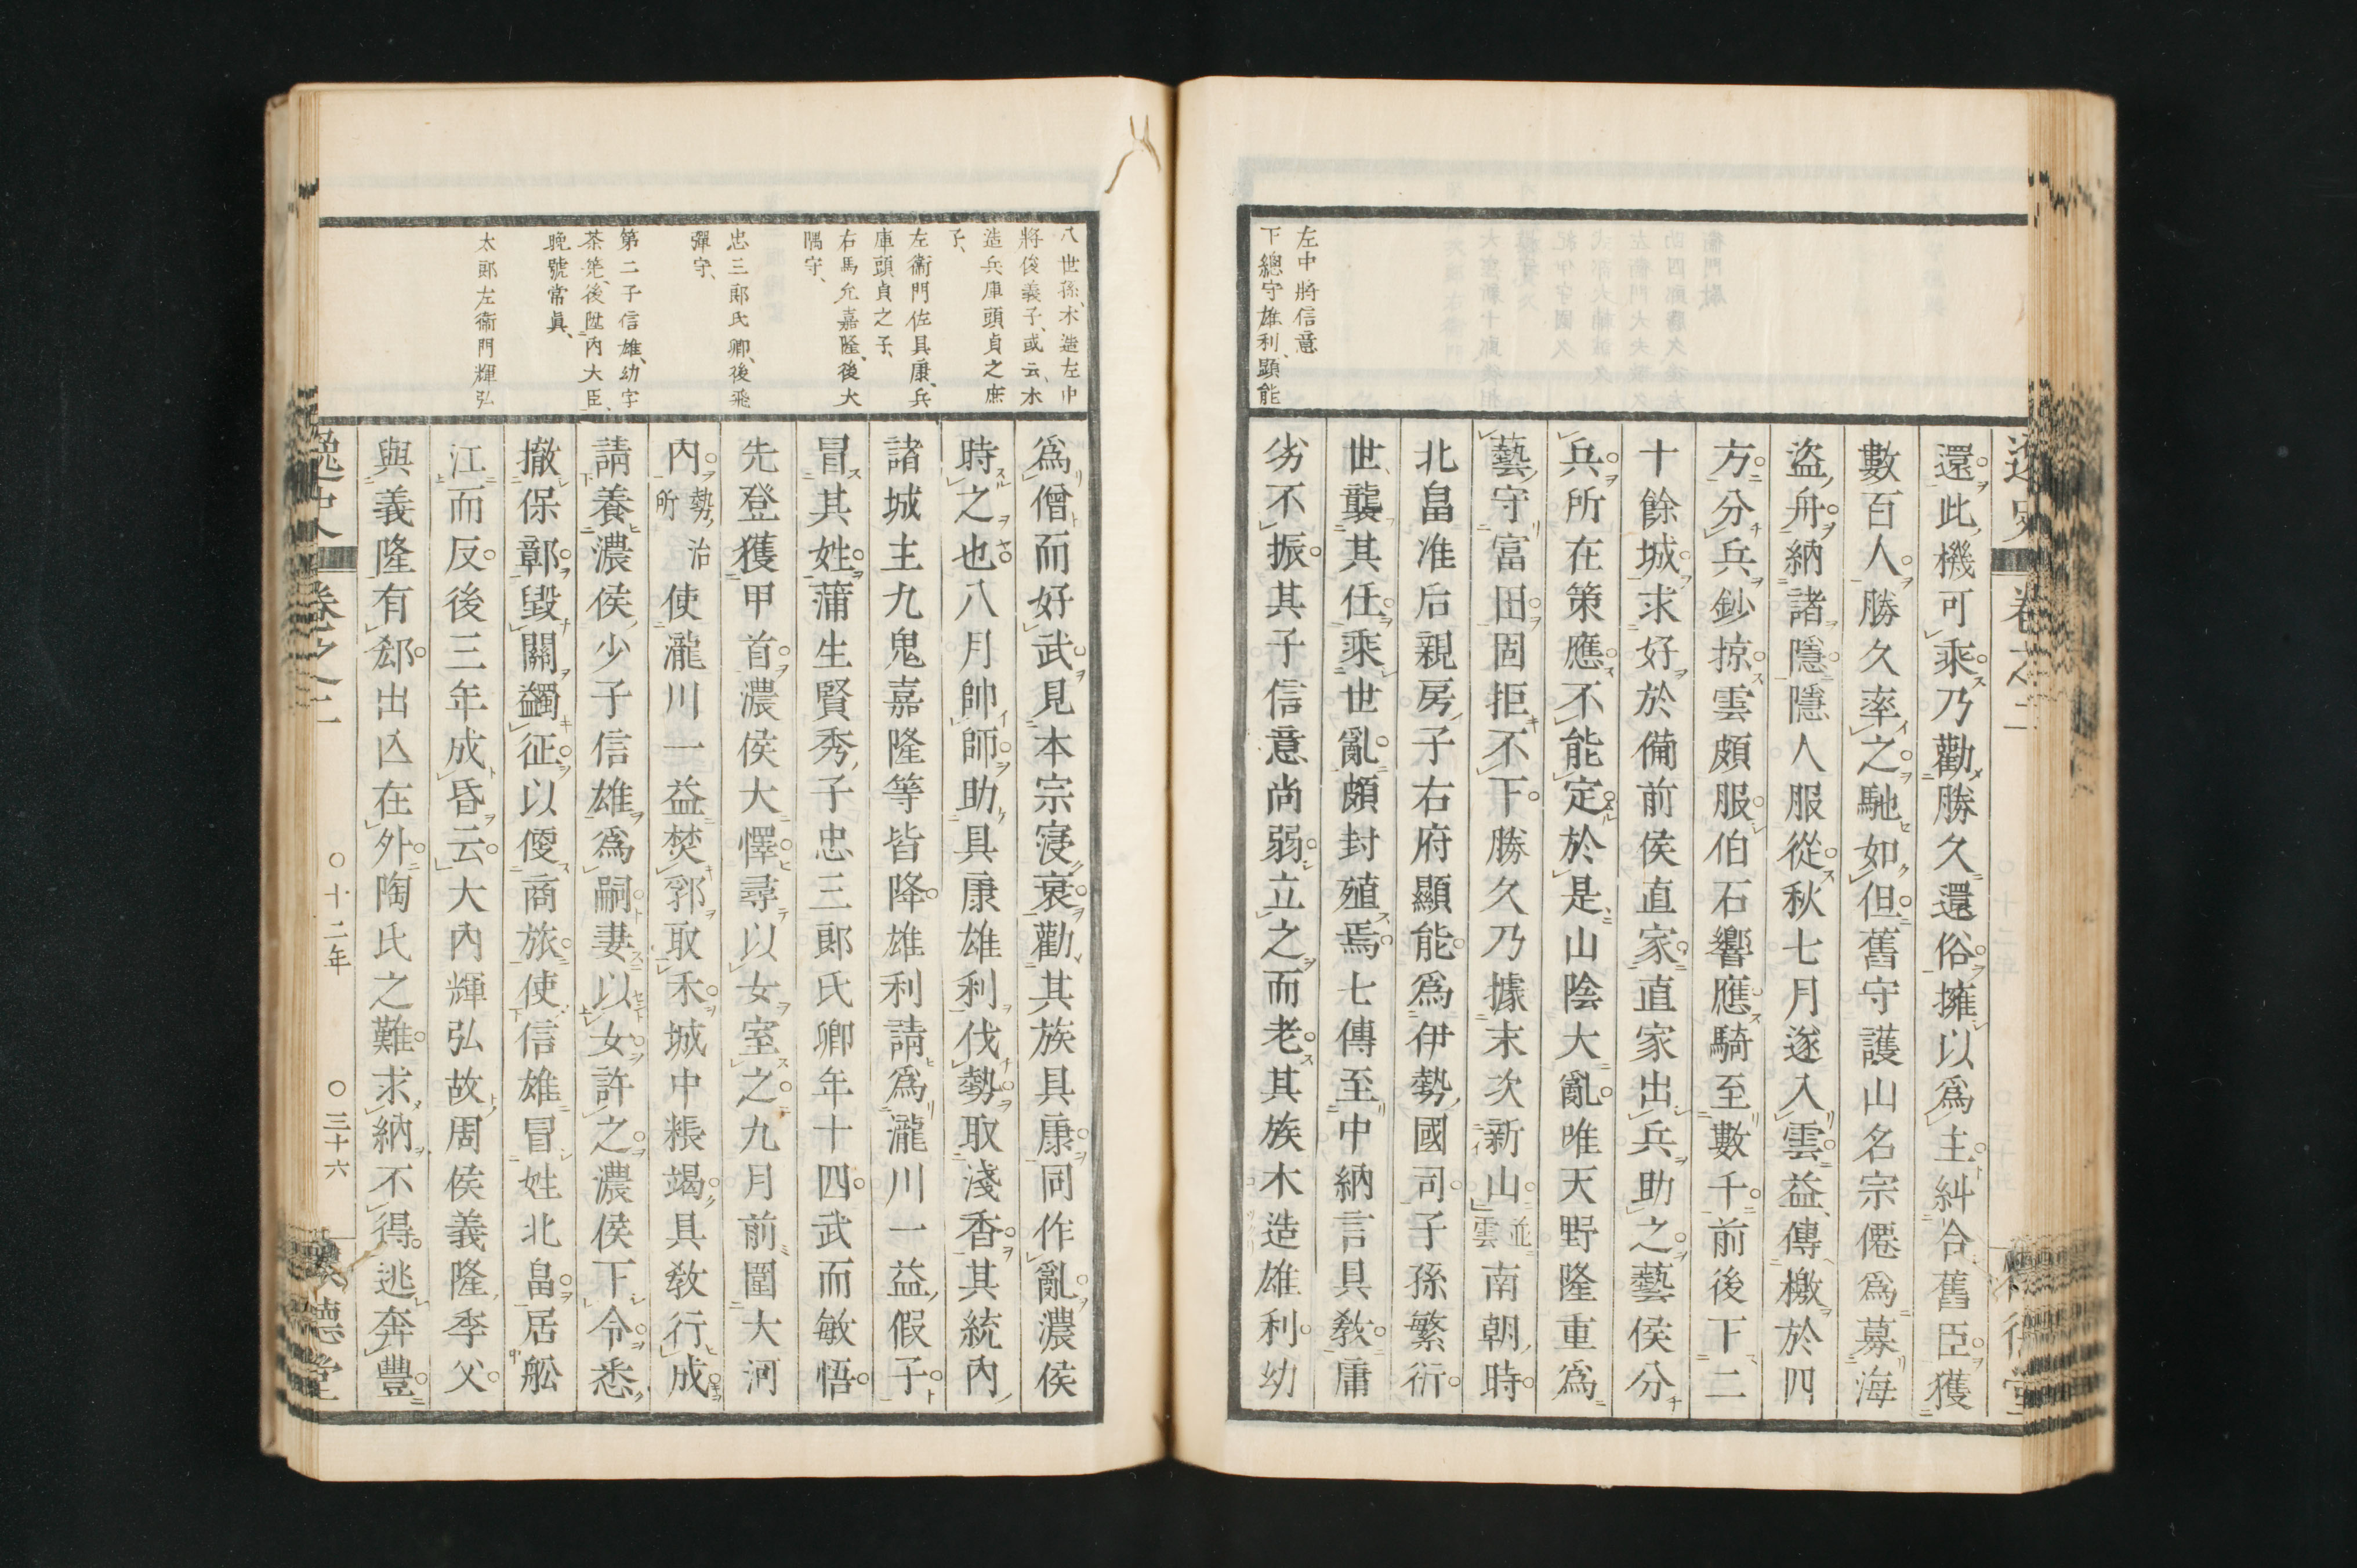 還此機可乘乃勸勝久還俗擁以爲主糾合舊臣獲
數百人勝久率之馳如但舊守護山名宗僊爲募海
盜舟納諸隱隱人服從秋七月遂入雲益傳檄於四
方分兵鈔掠雲頗服伯石響應騎至數千前後下二
十餘城求好於備前侯直家直家出兵助之藝侯分
兵所在策應不能定於是山陰大亂唯天野隆重爲
藝守富田固拒不下勝久乃據末次新山並雲南朝時
北畠准后親房子右府顯能爲伊勢國司子孫繁衍
世襲其任乘世亂頗封殖焉七傳至中納言具敎庸
劣不振其子信意尚弱立之而老其族木造雄利幼
左中將信意
下總守雄利、顯能
八世孫、木造左中
將俊義子、或云、木
造兵庫頭貞之庶
子、
左衞門佐具康、兵
庫頭貞之子、
右馬允嘉隆、後大
隅守、
忠三郎氏卿、後飛
彈守、
第二子信雄、幼字
茶筅、後陞內大臣、
晚號常眞、
太郎左衞門輝弘
爲僧而好武見本宗寖衰勸其族具康同作亂濃侯
時之也八月帥師助具康雄利伐勢取淺香其統內
諸城主九鬼嘉隆等皆降雄利請爲瀧川一益假子
冒其姓蒲生賢秀子忠三郎氏卿年十四武而敏悟
先登獲甲首濃侯大懌尋以女室之九月前圍大河
內勢治所使瀧川一益焚郛取禾城中粻竭具敎行成
請養濃侯少子信雄爲嗣妻以女許之濃侯下令悉
撤保鄣毀關蠲征以優商旅使信雄冒姓北畠居舩
江而反後三年成昏云大內輝弘故周侯義隆季父
與義隆有郄出亾在外陶氏之難求納不得逃奔豐
逸史 卷之二 〇十二年 〇三十六 懷德堂